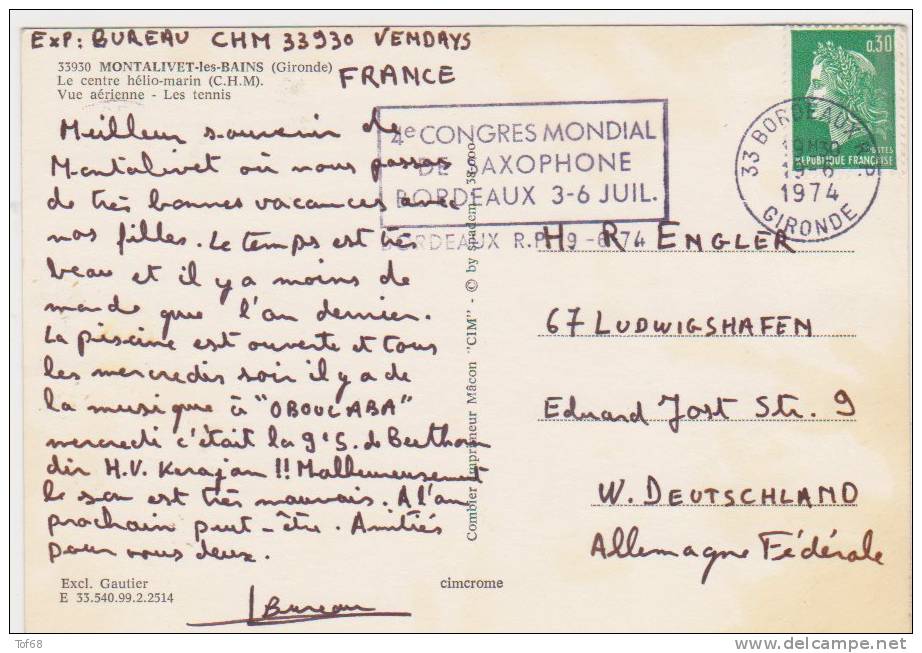 Exp: BUREAU CHM 33930 VENDAYS
FRANCE
33930 MONTALIVET-les-BAINS (Gironde)
Le centre hélio-marin (C.H.M).
Vue aérienne - Les tennis
Meilleur souvenir de
Montalivet où nous passons
de très bonnes vacances avec
nos filles. Le temps est très
beau et il y a moins de
monde que l'an dernier.
La piscine est ouverte et tous
les mercredis soir il y a de
la musique à "OBOULABA"
mercredi c'était la 9e S. de Beethoven
dir H.V. Karajan !! Malheureusement
le son est très mauvais. A l'an
prochain peut-être. Amitiés
pour vous deux.
Bureau
Excl. Gautier
E 33.540.99.2.2514
cimcrome
Combier Imprimeur Mâcon "CIM" - © by spadem 38-000
4e CONGRES MONDIAL
DE SAXOPHONE
BORDEAUX 3-6 JUIL.
BORDEAUX R.P. 19-6-74
33 BORDEAUX R.P.
19H30
19-6
1974
GIRONDE
0,30
POSTES
REPUBLIQUE FRANÇAISE
H R ENGLER
67 LUDWIGSHAFEN
Eduard Jost Str. 9
W. DEUTSCHLAND
Allemagne Fédérale
Tof68
delcampe.net